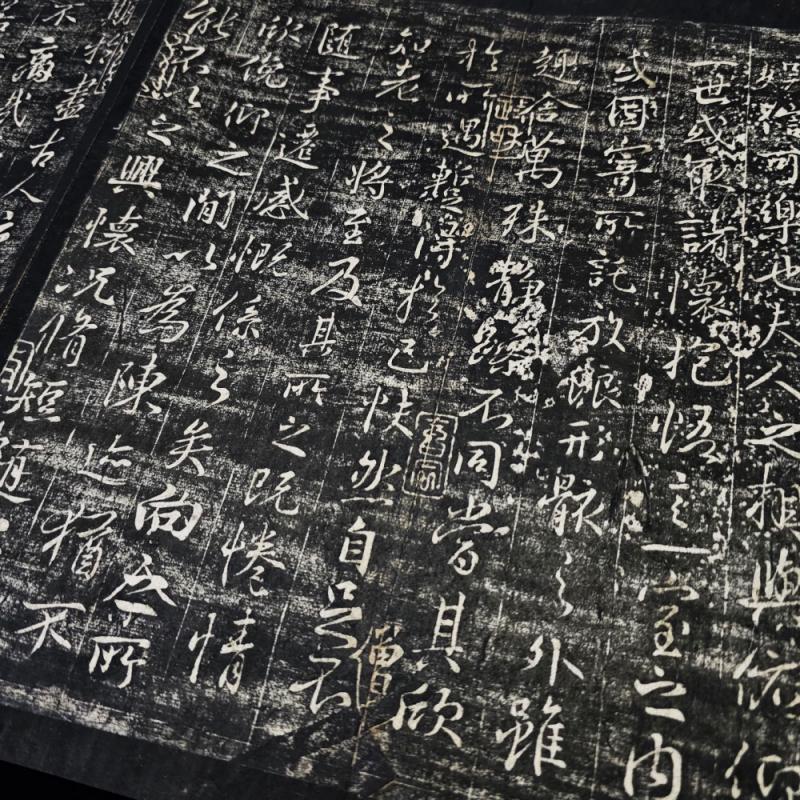 娛信可樂也夫人之相與俯仰
一世或取諸懷抱悟言一室之內
或因寄所託放浪形骸之外雖
趣舍萬殊靜躁不同當其欣
於所遇暫得於己怏然自足不
僧
知老之將至及其所之既惓情
隨事遷感慨係之矣向之所
欣俛仰之間以為陳迹猶不
能不以之興懷況脩短隨
期於盡古人云
不痛哉